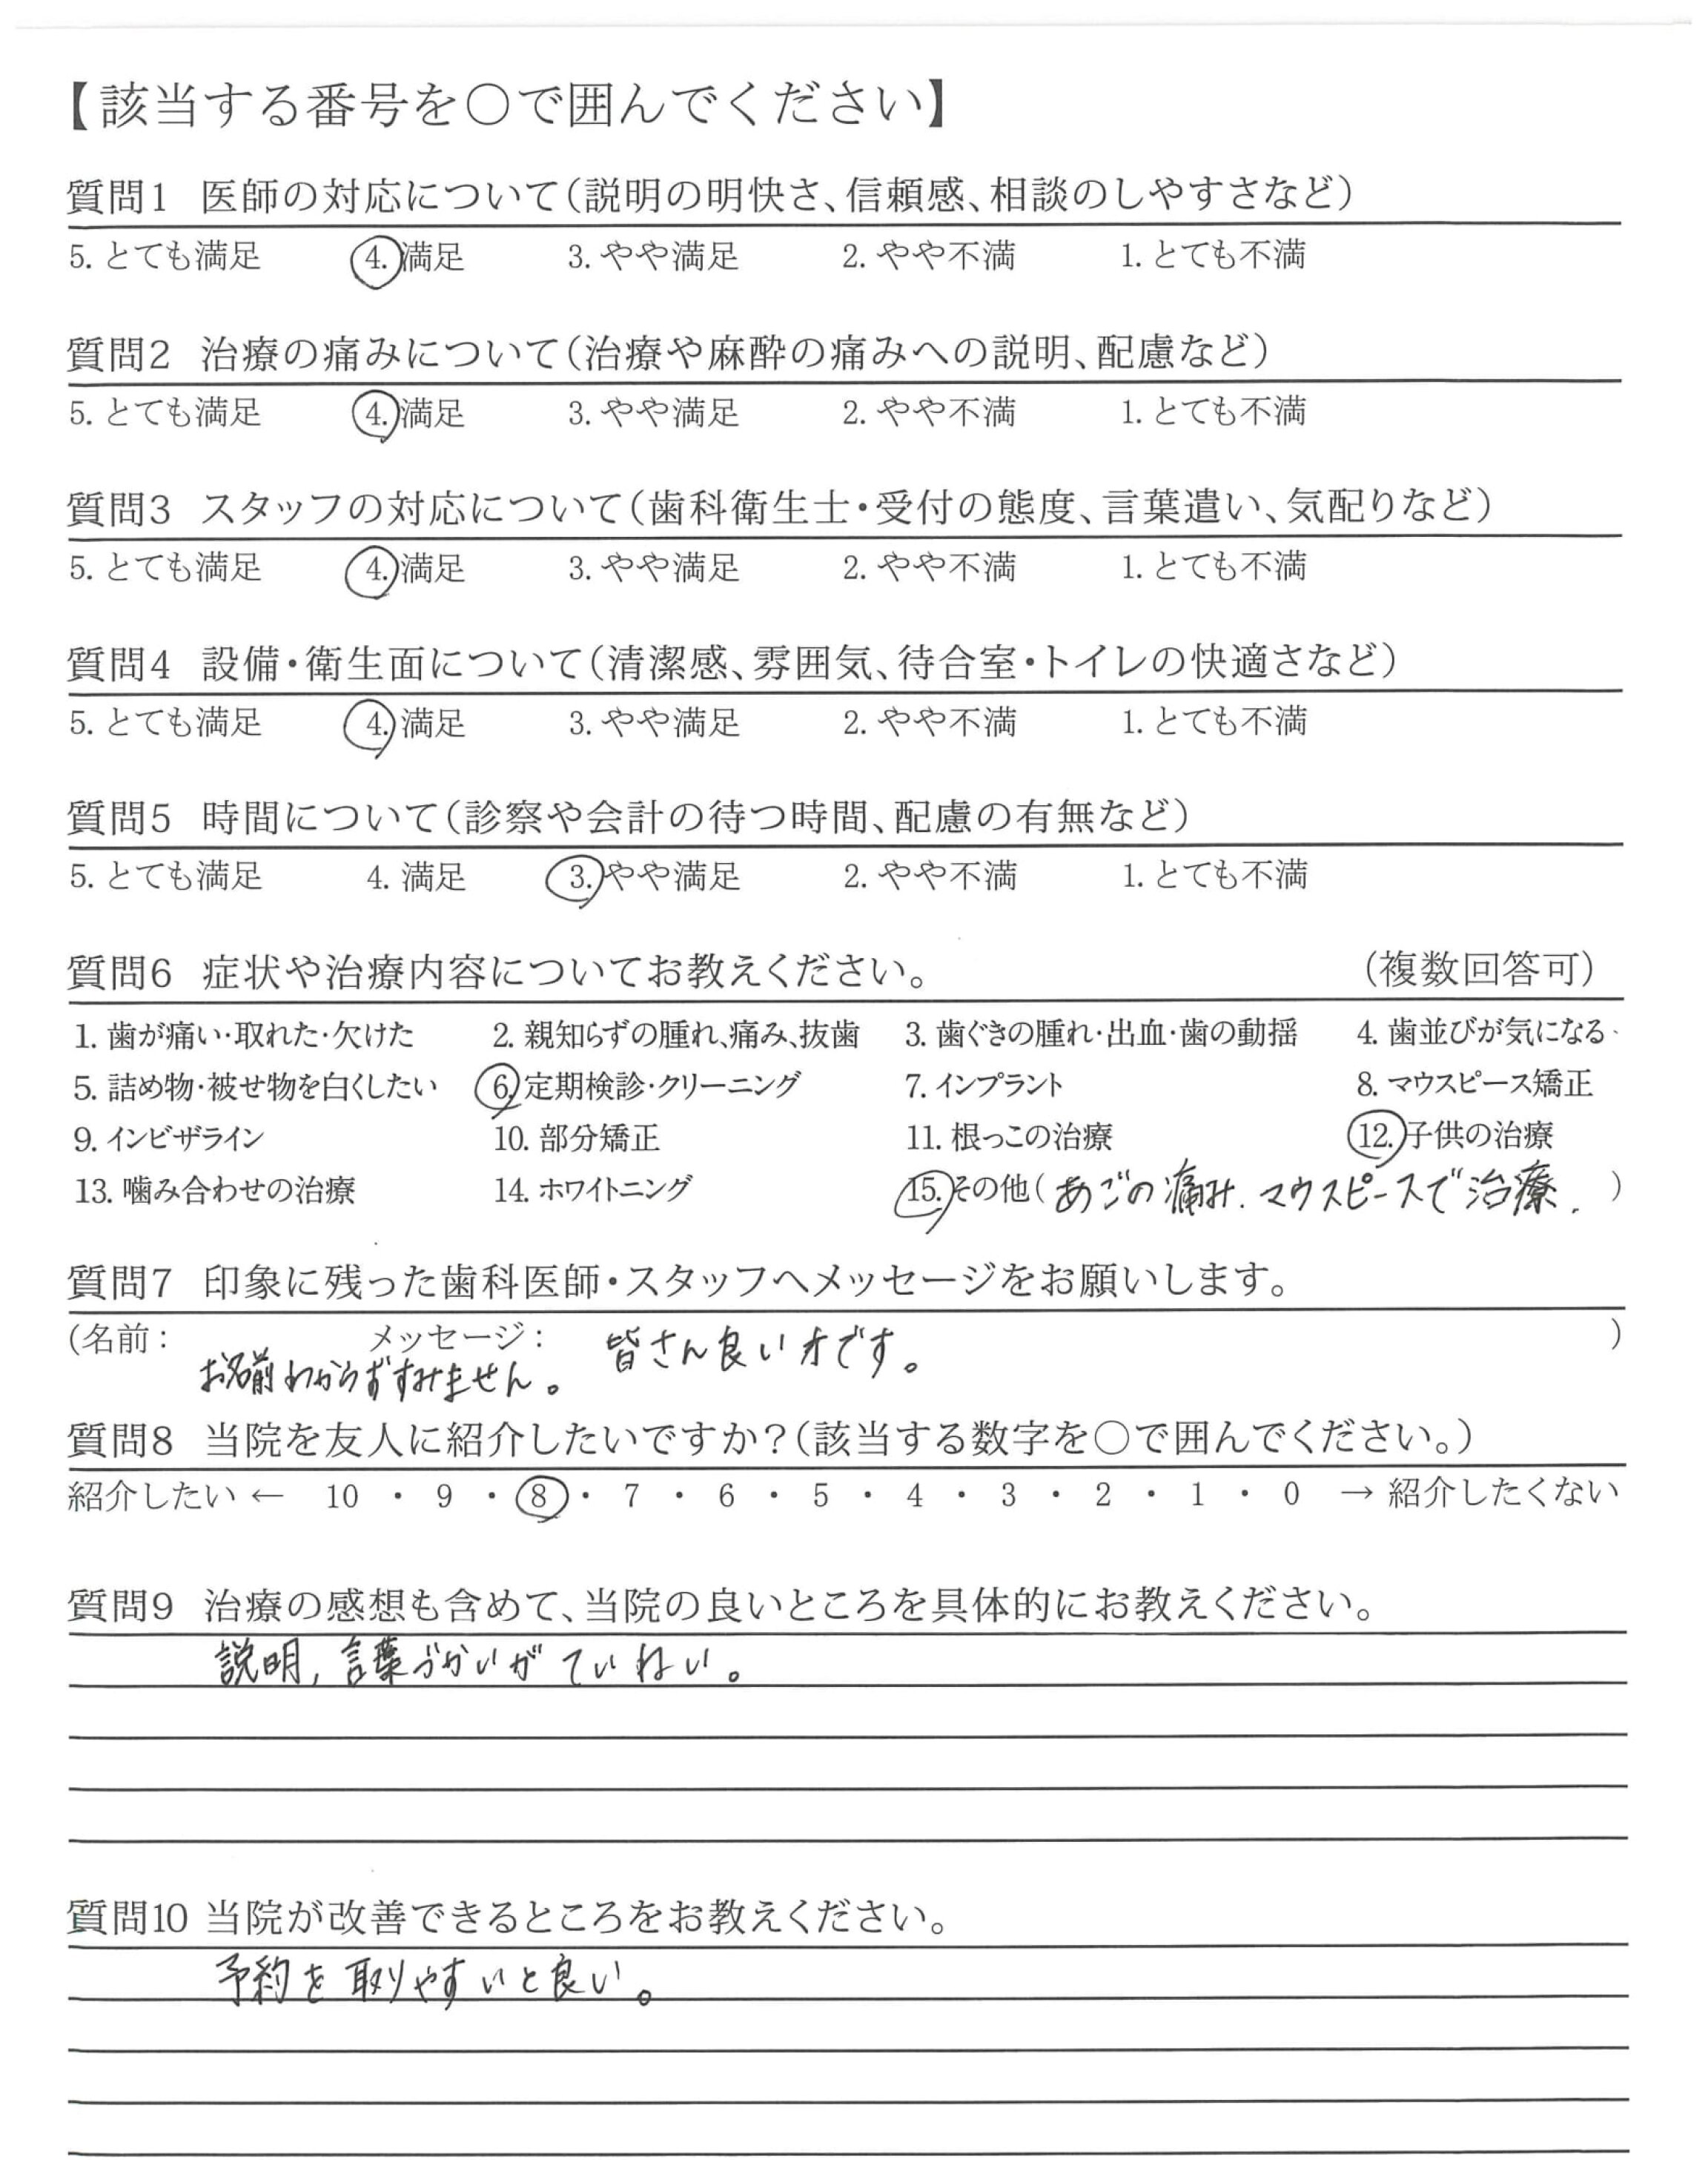 【該当する番号を○で囲んでください】
質問1 医師の対応について(説明の明快さ、信頼感、相談のしやすさなど)
5. とても満足 4. 満足 3. やや満足 2. やや不満 1. とても不満
質問2 治療の痛みについて(治療や麻酔の痛みへの説明、配慮など)
5. とても満足 4. 満足 3. やや満足 2. やや不満 1. とても不満
質問3 スタッフの対応について(歯科衛生士・受付の態度、言葉遣い、気配りなど)
5. とても満足 4. 満足 3. やや満足 2. やや不満 1. とても不満
質問4 設備・衛生面について(清潔感、雰囲気、待合室・トイレの快適さなど)
5. とても満足 4. 満足 3. やや満足 2. やや不満 1. とても不満
質問5 時間について(診察や会計の待つ時間、配慮の有無など)
5. とても満足 4. 満足 3. やや満足 2. やや不満 1. とても不満
質問6 症状や治療内容についてお教えください。 (複数回答可)
1. 歯が痛い・取れた・欠けた 2. 親知らずの腫れ、痛み、抜歯 3. 歯ぐきの腫れ・出血・歯の動揺 4. 歯並びが気になる
5. 詰め物・被せ物を白くしたい 6. 定期検診・クリーニング 7. インプラント 8. マウスピース矯正
9. インビザライン 10. 部分矯正 11. 根っこの治療 12. 子供の治療
13. 噛み合わせの治療 14. ホワイトニング 15. その他(あごの痛み. マウスピースで治療. )
質問7 印象に残った歯科医師・スタッフへメッセージをお願いします。
(名前: メッセージ: 皆さん良い方です。 )
お名前わからずすみません。
質問8 当院を友人に紹介したいですか?(該当する数字を○で囲んでください。)
紹介したい ← 10 ・ 9 ・ 8 ・ 7 ・ 6 ・ 5 ・ 4 ・ 3 ・ 2 ・ 1 ・ 0 → 紹介したくない
質問9 治療の感想も含めて、当院の良いところを具体的にお教えください。
説明, 言葉づかいがていねい。
質問10 当院が改善できるところをお教えください。
予約を取りやすいと良い。